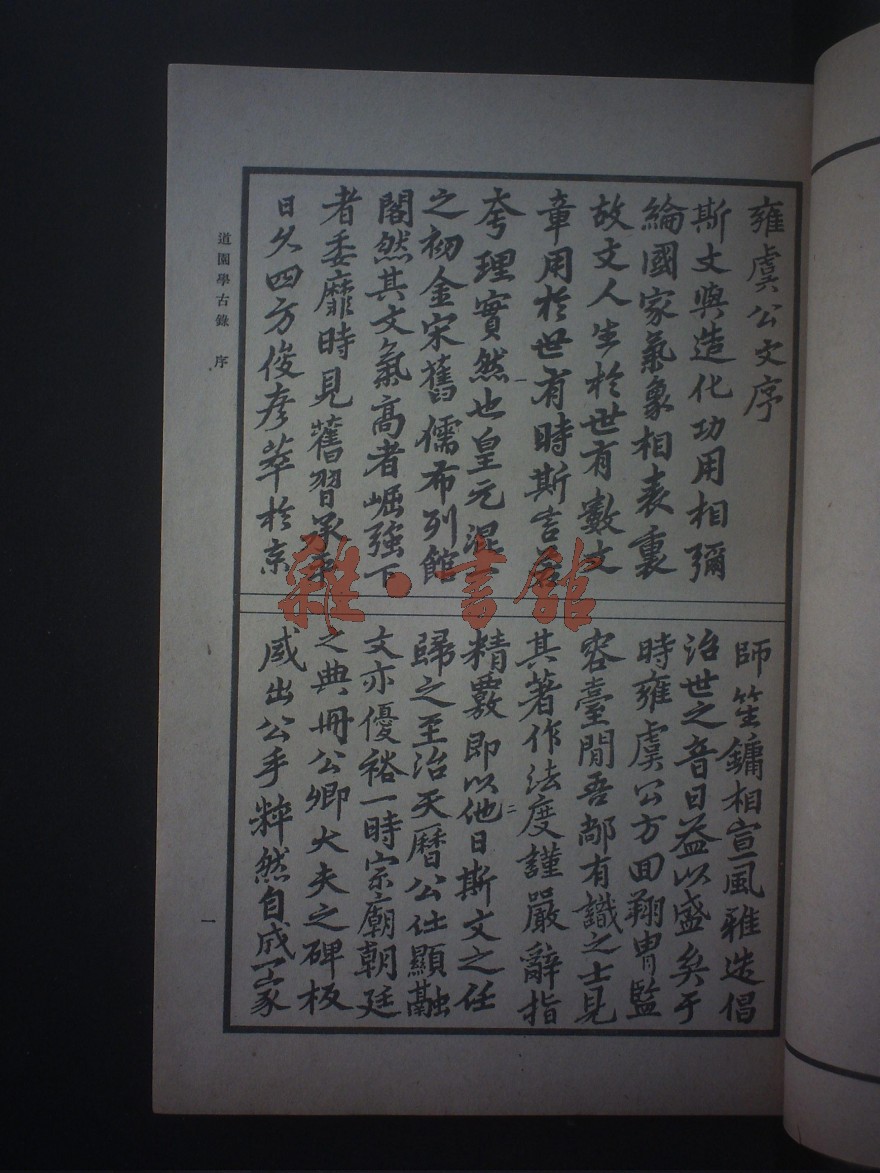 雍虞公文序
斯文與造化功用相彌
綸國家氣象相表裏
故文人生於世有數文
章用於世有時斯言若
夸理實然也皇元混一
之初金宋舊儒布列館
閣然其文氣高者崛強下
者委靡時見舊習承平
日久四方俊彥萃於京
師笙鏞相宣風雅迭倡
治世之音日益以盛矣于
時雍虞公方回翔胄監
容臺閒吾鄰有識之士見
其著作法度謹嚴辭指
精覈即以他日斯文之任
歸之至治天曆公仕顯融
文亦優裕一時宗廟朝廷
之典冊公卿大夫之碑板
咸出公手粹然自成一家
道園學古錄 序
一
雜·書館